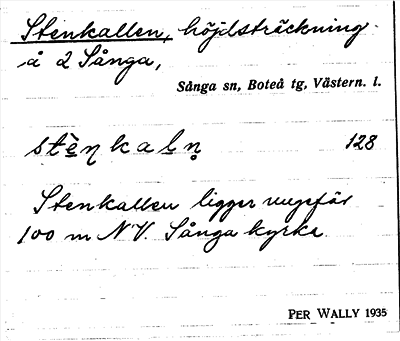 Stenkallen, höjdsträckning
å 2 Sånga,
Sånga sn, Boteå tg, Västern. l.
stè̱ŋkaḻn̥ 128
Stenkallen ligger ungefär
100 m N.V. Sånga kyrka.
PER WALLY 1935